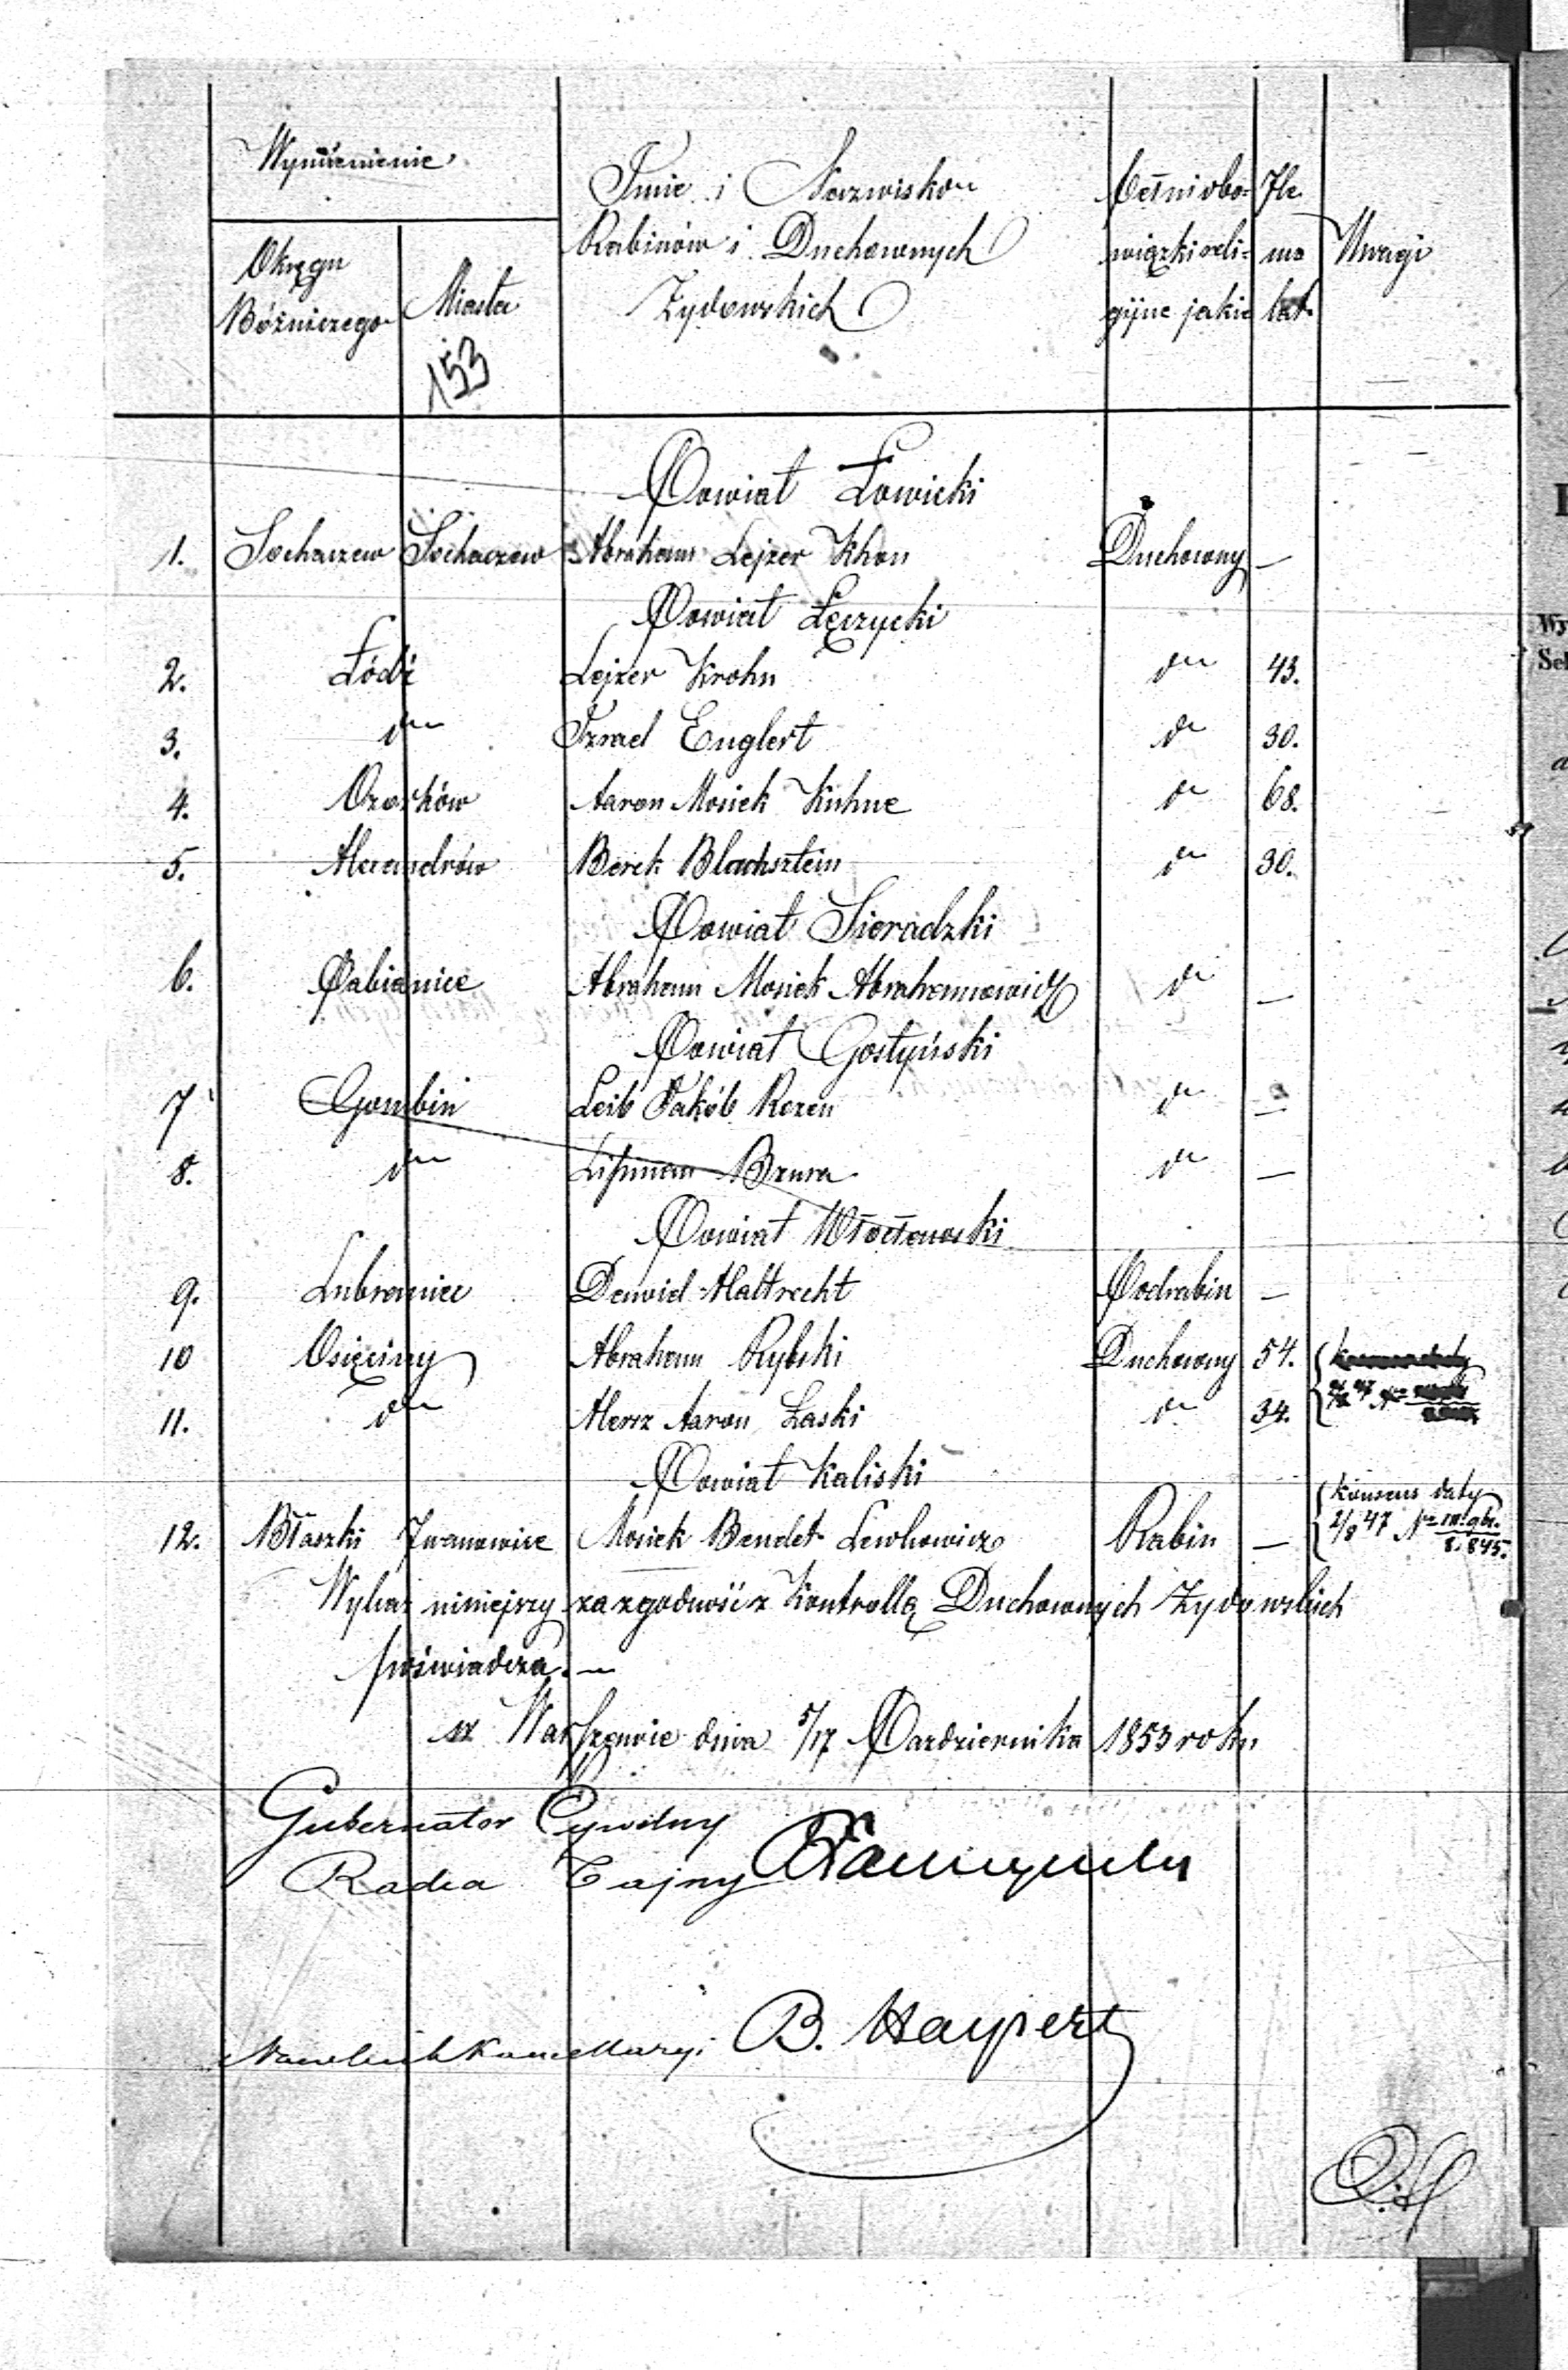 Wymienienie
Okręgu Bóżniczego
Miasta
153
Imie i Nazwisko
Rabinów i Duchownych
Żydowskich
Pełni obo-
wiązki reli-
gijne jakie
Ile
ma
lat
Uwagi
Powiat Łowicki
1. Sochaczew Sochaczew Abraham Lejzer Khon Duchowny —
Powiat Łęczycki
2. Łódź Lejzer Krohn do 43.
3. do Izrael Englert do 30.
4. Ozorków Aaron Mosiek Kuhne do 68.
5. Alexandrów Berek Blachsztein do 30.
Powiat Sieradzki
6. Pabianice Abraham Mosiek Abrahamowicz do —
Powiat Gostyński
7 Gombin Leib Jakób Rozen do —
8. do Lipman Bzura do —
Powiat Włocławski
9. Lubraniec Dawid Altrecht Podrabin —
10 Osięciny Abraham Rybski Duchowny 54.
11. do Hersz Aaron Łaski do 34.
Powiat Kaliski
12. Błaszki Iwanowice Mosiek Bendet Lewkowicz Rabin —
Konsens daty
2/8 47 No
8.845.
Wykaz niniejszy za zgodność z Kontrollą Duchownych Żydowskich
poświadcza.—
w Warszawie dnia 5/17 Października 1853 roku
Gubernator Cywilny
Radca Tajny
Naczelnik Kancellaryi B. Haypert